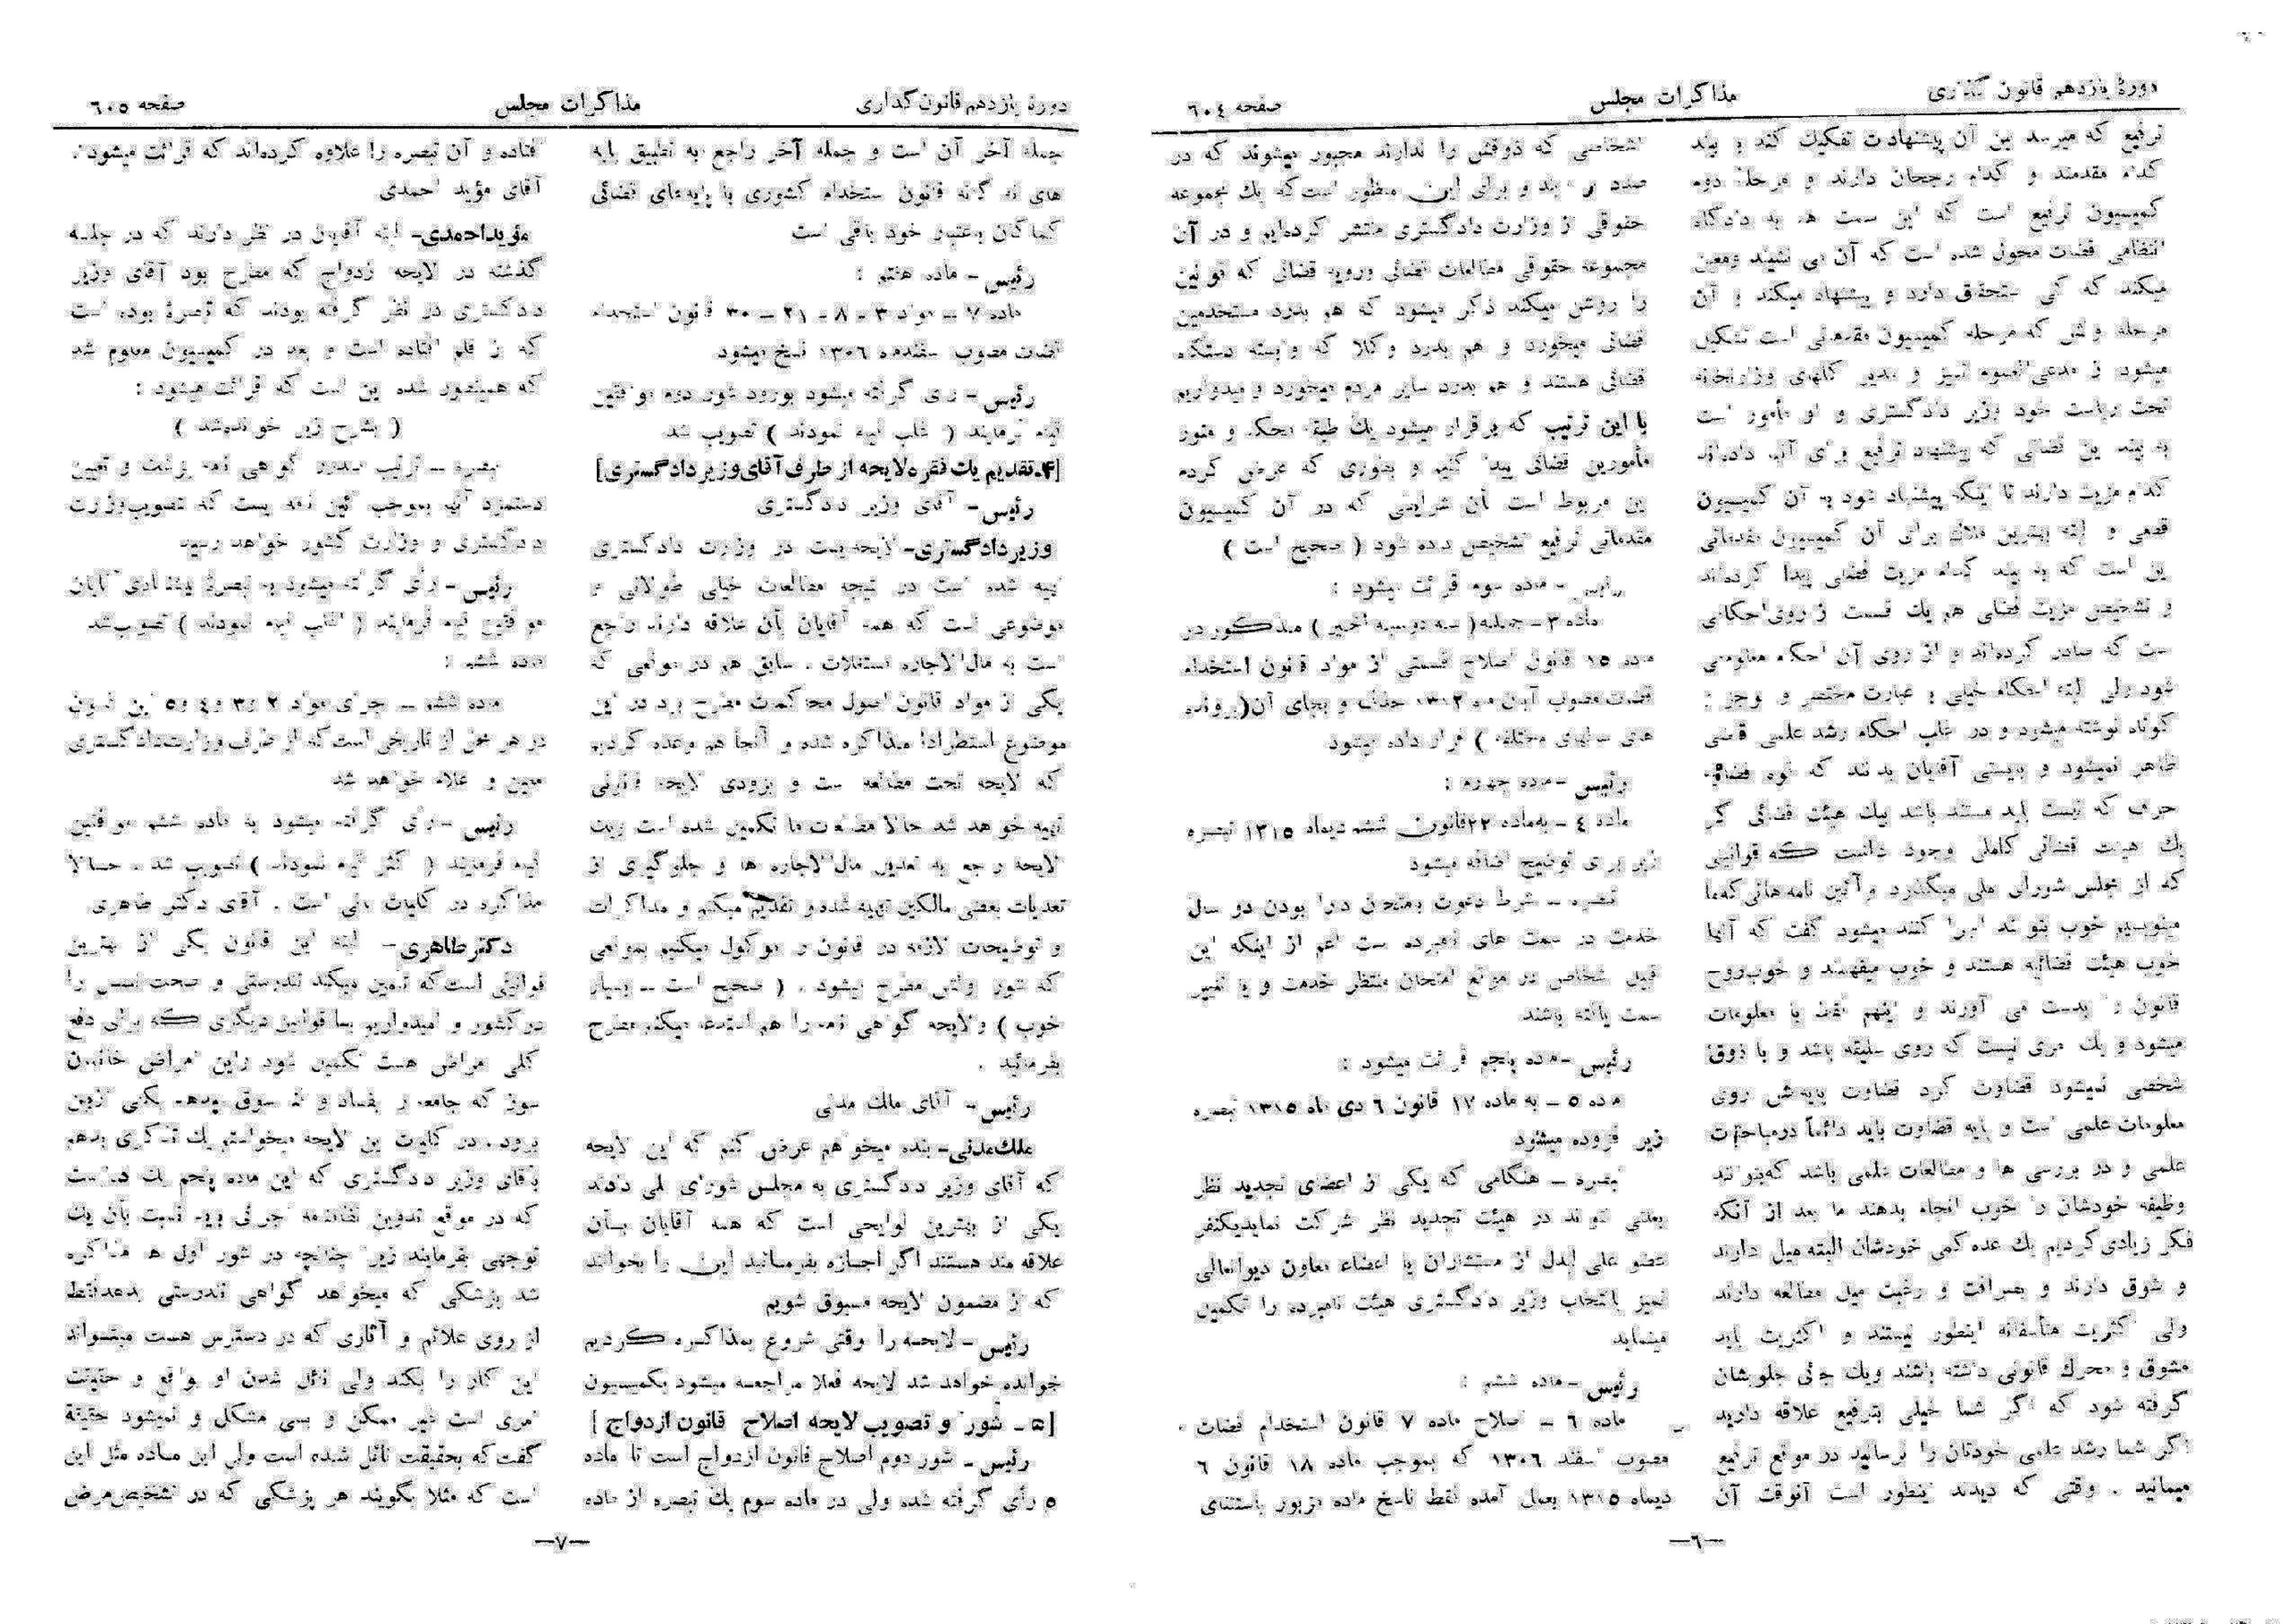 دورهٔ یازدهم قانون گذاری
مذاکرات مجلس
صفحه ٦٠٤
ترفیع که میرسد بین آن پیشنهادات تفکیک کند و بیند
کدام مقدمند و کدام رجحان دارند و مرحله دوم
کمیسیون ترفیع است که این سمت هم به دادگاه
انتظامی قضات محول شده است که آن می نشیند ومعین
میکند که کی استحقاق دارد و پیشنهاد میکند و آن
مرحله اولش که مرحله کمیسیون مقدماتی است تشکیل
میشود از مدعی‌العموم تمیز و مدیر کلهای وزارتخانه
تحت ریاست خود وزیر دادگستری و او مأمور است
به بیند این قضاتی که پیشنهاد ترفیع برای آنها داده‌اند
کدام مزیت دارند تا اینکه پیشنهاد شود به آن کمیسیون
قطعی و البته بهترین ملاک برای آن کمیسیون مقدماتی
این است که به بیند کدام مزیت قضائی پیدا کرده‌اند
و تشخیص مزیت قضائی هم یک قسمت از روی احکامی
است که صادر کرده‌اند و از روی آن احکام معلوم می
شود ولی البته احکام خیلی و عبارت مختصر و موجز و
کوتاه نوشته میشود و در غالب احکام رشد علمی قاضی
ظاهر نمیشود و بایستی آقایان بدانند که قوه قضائیه
حرف که نیست باید مستند باشد بیک هیئت قضائی اگر
یک هیئت قضائی کاملی وجود داشت که قوانینی
که از مجلس شورای ملی میگذرد و آئین نامه هائی که ما
مینویسیم خوب بتوانند اجرا کنند میشود گفت که آنها
خوب هیئت قضائیه هستند و خوب میفهمند و خوب روح
قانون را بدست می آورند و اینهم فقط با معلومات
میشود و یک امری نیست که روی سلیقه باشد و با ذوق
شخصی نمیشود قضاوت کرد قضاوت پایه‌اش روی
معلومات علمی است و پایه قضاوت باید دائماً درمباحثات
علمی و در بررسی ها و مطالعات علمی باشد که بتوانند
وظیفه خودشان را خوب انجام بدهند ما بعد از آنکه
فکر زیادی کردیم یک عده کمی خودشان البته میل دارند
و شوق دارند و بصرافت و رغبت میل مطالعه دارند
ولی اکثریت متأسفانه اینطور نیستند و اکثریت باید
مشوق و محرک قانونی داشته باشند ویک جائی جلوشان
گرفته شود که اگر شما خیلی بترفیع علاقه دارید
اگر شما رشد علمی خودتان را نرسانید در موقع ترفیع
میمانید . وقتی که دیدند اینطور است آنوقت آن
اشخاصی که ذوقش را ندارند مجبور میشوند که در
صدد برآیند و برای این منظور است که یک مجموعه
حقوقی از وزارت دادگستری منتشر کرده‌ایم و در آن
مجموعه حقوقی مطالعات قضائی ورویه قضائی که قوانین
را روشن میکند ذکر میشود که هم بدرد مستخدمین
قضائی میخورد و هم بدرد وکلا که وابسته دستگاه
قضائی هستند و هم بدرد سایر مردم میخورد و امیدواریم
با این ترتیب که برقرار میشود یک طبقه محکم و منور
مأمورین قضائی پیدا کنیم و بطوری که عرض کردم
این مربوط است بآن شرایطی که در آن کمیسیون
مقدماتی ترفیع تشخیص داده شود ( صحیح است )
رئیس - ماده سوم قرائت میشود :
ماده ٣ - جمله ( سه دوسیه اخیر ) مذکور در
ماده ١٥ قانون اصلاح قسمتی از مواد قانون استخدام
قضات مصوب آبان ماه ١٣٠٢ حذف و بجای آن (پرونده
های سالهای مختلفه ) قرار داده میشود
رئیس - ماده چهارم :
ماده ٤ - به‌ماده ٢٢ قانون ششم دیماه ١٣١٥ تبصره
زیر برای توضیح اضافه میشود
تبصره - شرط دعوت بامتحان دارا بودن دو سال
خدمت در سمت های نامبرده است اعم از اینکه این
قبیل اشخاص در موقع امتحان منتظر خدمت و یا تغییر
سمت یافته باشند
رئیس - ماده پنجم قرائت میشود :
ماده ٥ - به ماده ١٧ قانون ٦ دی ماه ١٣١٥ تبصره
زیر افزوده میشود
تبصره - هنگامی که یکی از اعضای تجدید نظر
بعللی نتواند در هیئت تجدید نظر شرکت نماید یکنفر
عضو علی البدل از مستشاران یا اعضاء معاون دیوانعالی
تمیز بانتخاب وزیر دادگستری هیئت نامبرده را تکمیل
مینماید
رئیس - ماده ششم :
ماده ٦ - اصلاح ماده ٧ قانون استخدام قضات
مصوب اسفند ١٣٠٦ که بموجب ماده ١٨ قانون ٦
دیماه ١٣١٥ بعمل آمده فقط ناسخ ماده مزبور باستثنای
—٦—
دورهٔ یازدهم قانون گذاری
مذاکرات مجلس
صفحه ٦٠٥
جمله آخر آن است و جمله آخر راجع به تطبیق پایه
های نه گانه قانون استخدام کشوری با پایه‌های قضائی
کماکان باعتبار خود باقی است
رئیس - ماده هفتم :
ماده ٧ - مواد ٣ - ٨ - ٢١ - ٣٠ قانون استخدام
قضات مصوب اسفندماه ١٣٠٦ نسخ میشود
رئیس - رأی گرفته میشود بورود شور دوم موافقین
قیام فرمایند ( اغلب قیام نمودند ) تصویب شد
[٤- تقدیم یک فقره لایحه از طرف آقای وزیر دادگستری]
رئیس - آقای وزیر دادگستری
وزیر دادگستری - لایحه‌ایست در وزارت دادگستری
تهیه شده است در نتیجه مطالعات خیلی طولانی و
موضوعی است که همه آقایان بآن علاقه دارند راجع
است به مال‌الاجاره مستغلات . سابق هم در موقعی که
یکی از مواد قانون اصول محاکمات مطرح بود در این
موضوع استطراداً مذاکره شده و آنجا هم وعده کردیم
که لایحه تحت مطالعه است و بزودی لایحه قانونی
تهیه خواهد شد حالا مطالعات ما تکمیل شده است ویک
لایحه راجع به تعدیل مال‌الاجاره ها و جلوگیری از
تعدیات بعضی مالکین تهیه شده و تقدیم میکنم و مذاکرات
و توضیحات لازمه در قانون را موکول میکنیم بموقعی
که شور اولش مطرح میشود . ( صحیح است - بسیار
خوب ) ولایحه گواهی نامه را هم استدعا میکنم مطرح
بفرمائید .
رئیس - آقای ملک مدنی
ملک‌مدنی - بنده میخواهم عرض کنم که این لایحه
که آقای وزیر دادگستری به مجلس شورای ملی دادند
یکی از بهترین لوایحی است که همه آقایان بآن
علاقه مند هستند اگر اجازه بفرمائید این را بخوانند
که از مضمون لایحه مسبوق شویم
رئیس - لایحه را وقتی شروع بمذاکره کردیم
خوانده خواهد شد لایحه فعلا مراجعه میشود بکمیسیون
[٥ - شور و تصویب لایحه اصلاح قانون ازدواج]
رئیس - شور دوم اصلاح قانون ازدواج است تا ماده
٥ رأی گرفته شده ولی در ماده سوم یک تبصره از ماده
افتاده و آن تبصره را علاوه کرده‌اند که قرائت میشود .
آقای مؤید احمدی
مؤیداحمدی - البته آقایان در نظر دارند که در جلسه
گذشته در لایحه ازدواج که مطرح بود آقای وزیر
دادگستری در نظر گرفته بودند که تبصرهٔ بوده است
که از قلم افتاده است و بعد در کمیسیون معلوم شد
که همینطور شده این است که قرائت میشود :
( بشرح زیر خوانده‌شد )
تبصره - ترتیب صدور گواهی نامه پزشک و تعیین
دستمزد آنها بموجب آئین نامه ایست که تصویب وزارت
دادگستری و وزارت کشور خواهد رسید
رئیس - رأی گرفته میشود به تبصرهٔ پیشنهادی آقایان
موافقین قیام فرمایند ( اغلب قیام نمودند ) تصویب شد
ماده ششم :
ماده ششم - اجرای مواد ٢ و٣ و٤ و٥ این قانون
در هر محل از تاریخی است که از طرف وزارت دادگستری
معین و اعلام خواهد شد
رئیس - رأی گرفته میشود به ماده ششم موافقین
قیام فرمایند ( اکثر قیام نمودند ) تصویب شد . حالا
مذاکره در کلیات ثانی است . آقای دکتر طاهری
دکتر طاهری - البته این قانون یکی از بهترین
قوانینی است که تأمین میکند تندرستی و صحت نسل را
در کشور و امیدواریم بما قوانین دیگری که برای دفع
کلی امراض هست تکمیل شود و این امراض خانمان
سوز که جامعه را بفساد و فنا سوق میدهد بکلی ازبین
برود . در کلیات این لایحه میخواستم یک تذکری بدهم
بآقای وزیر دادگستری که این ماده پنجم یک طوریست
که در موقع تدوین نظامنامه اجرائی باید نسبت بآن یک
توجهی بفرمایند زیرا چنانچه در شور اول هم مذاکره
شد پزشکی که میخواهد گواهی تندرستی بدهد فقط
از روی علائم و آثاری که در دسترس هست میتواند
این کار را بکند ولی نائل شدن او بواقع و حقیقت
امری است غیر ممکن و بسی مشکل و نمیشود حقیقة
گفت که بحقیقت نائل شده است ولی این ماده مثل این
است که مثلا بگویند هر پزشکی که در تشخیص مرض
—٧—